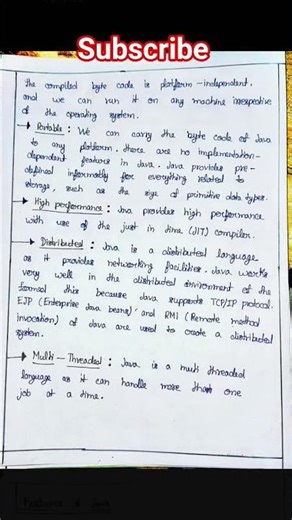 Subscribe
The compiled byte code is platform-independent.
and we can run it on any machine irrespective
of the operating system.
→ Portable : We can carry the byte code of Java
to any platform. there are no implementation-
dependent feature in Java. Java provides pre-
defined information for everything related to
storage, such as the size of primitive data types.
→ High performance : Java provides high performance
with use of the just in time (JIT) compiler.
→ Distributed : Java is a distributed language
as it provides networking facilities. Java works
very well in the distributed environment of the
because Java supports TCP/IP protocol.
EJP (Enterprise Java beans) and RMI (Remote method
invocation) of Java are used to create a distributed
system.
→ Multi-Threaded : Java is a multi threaded
language as it can handle more than one
job at a time.
Features of Java